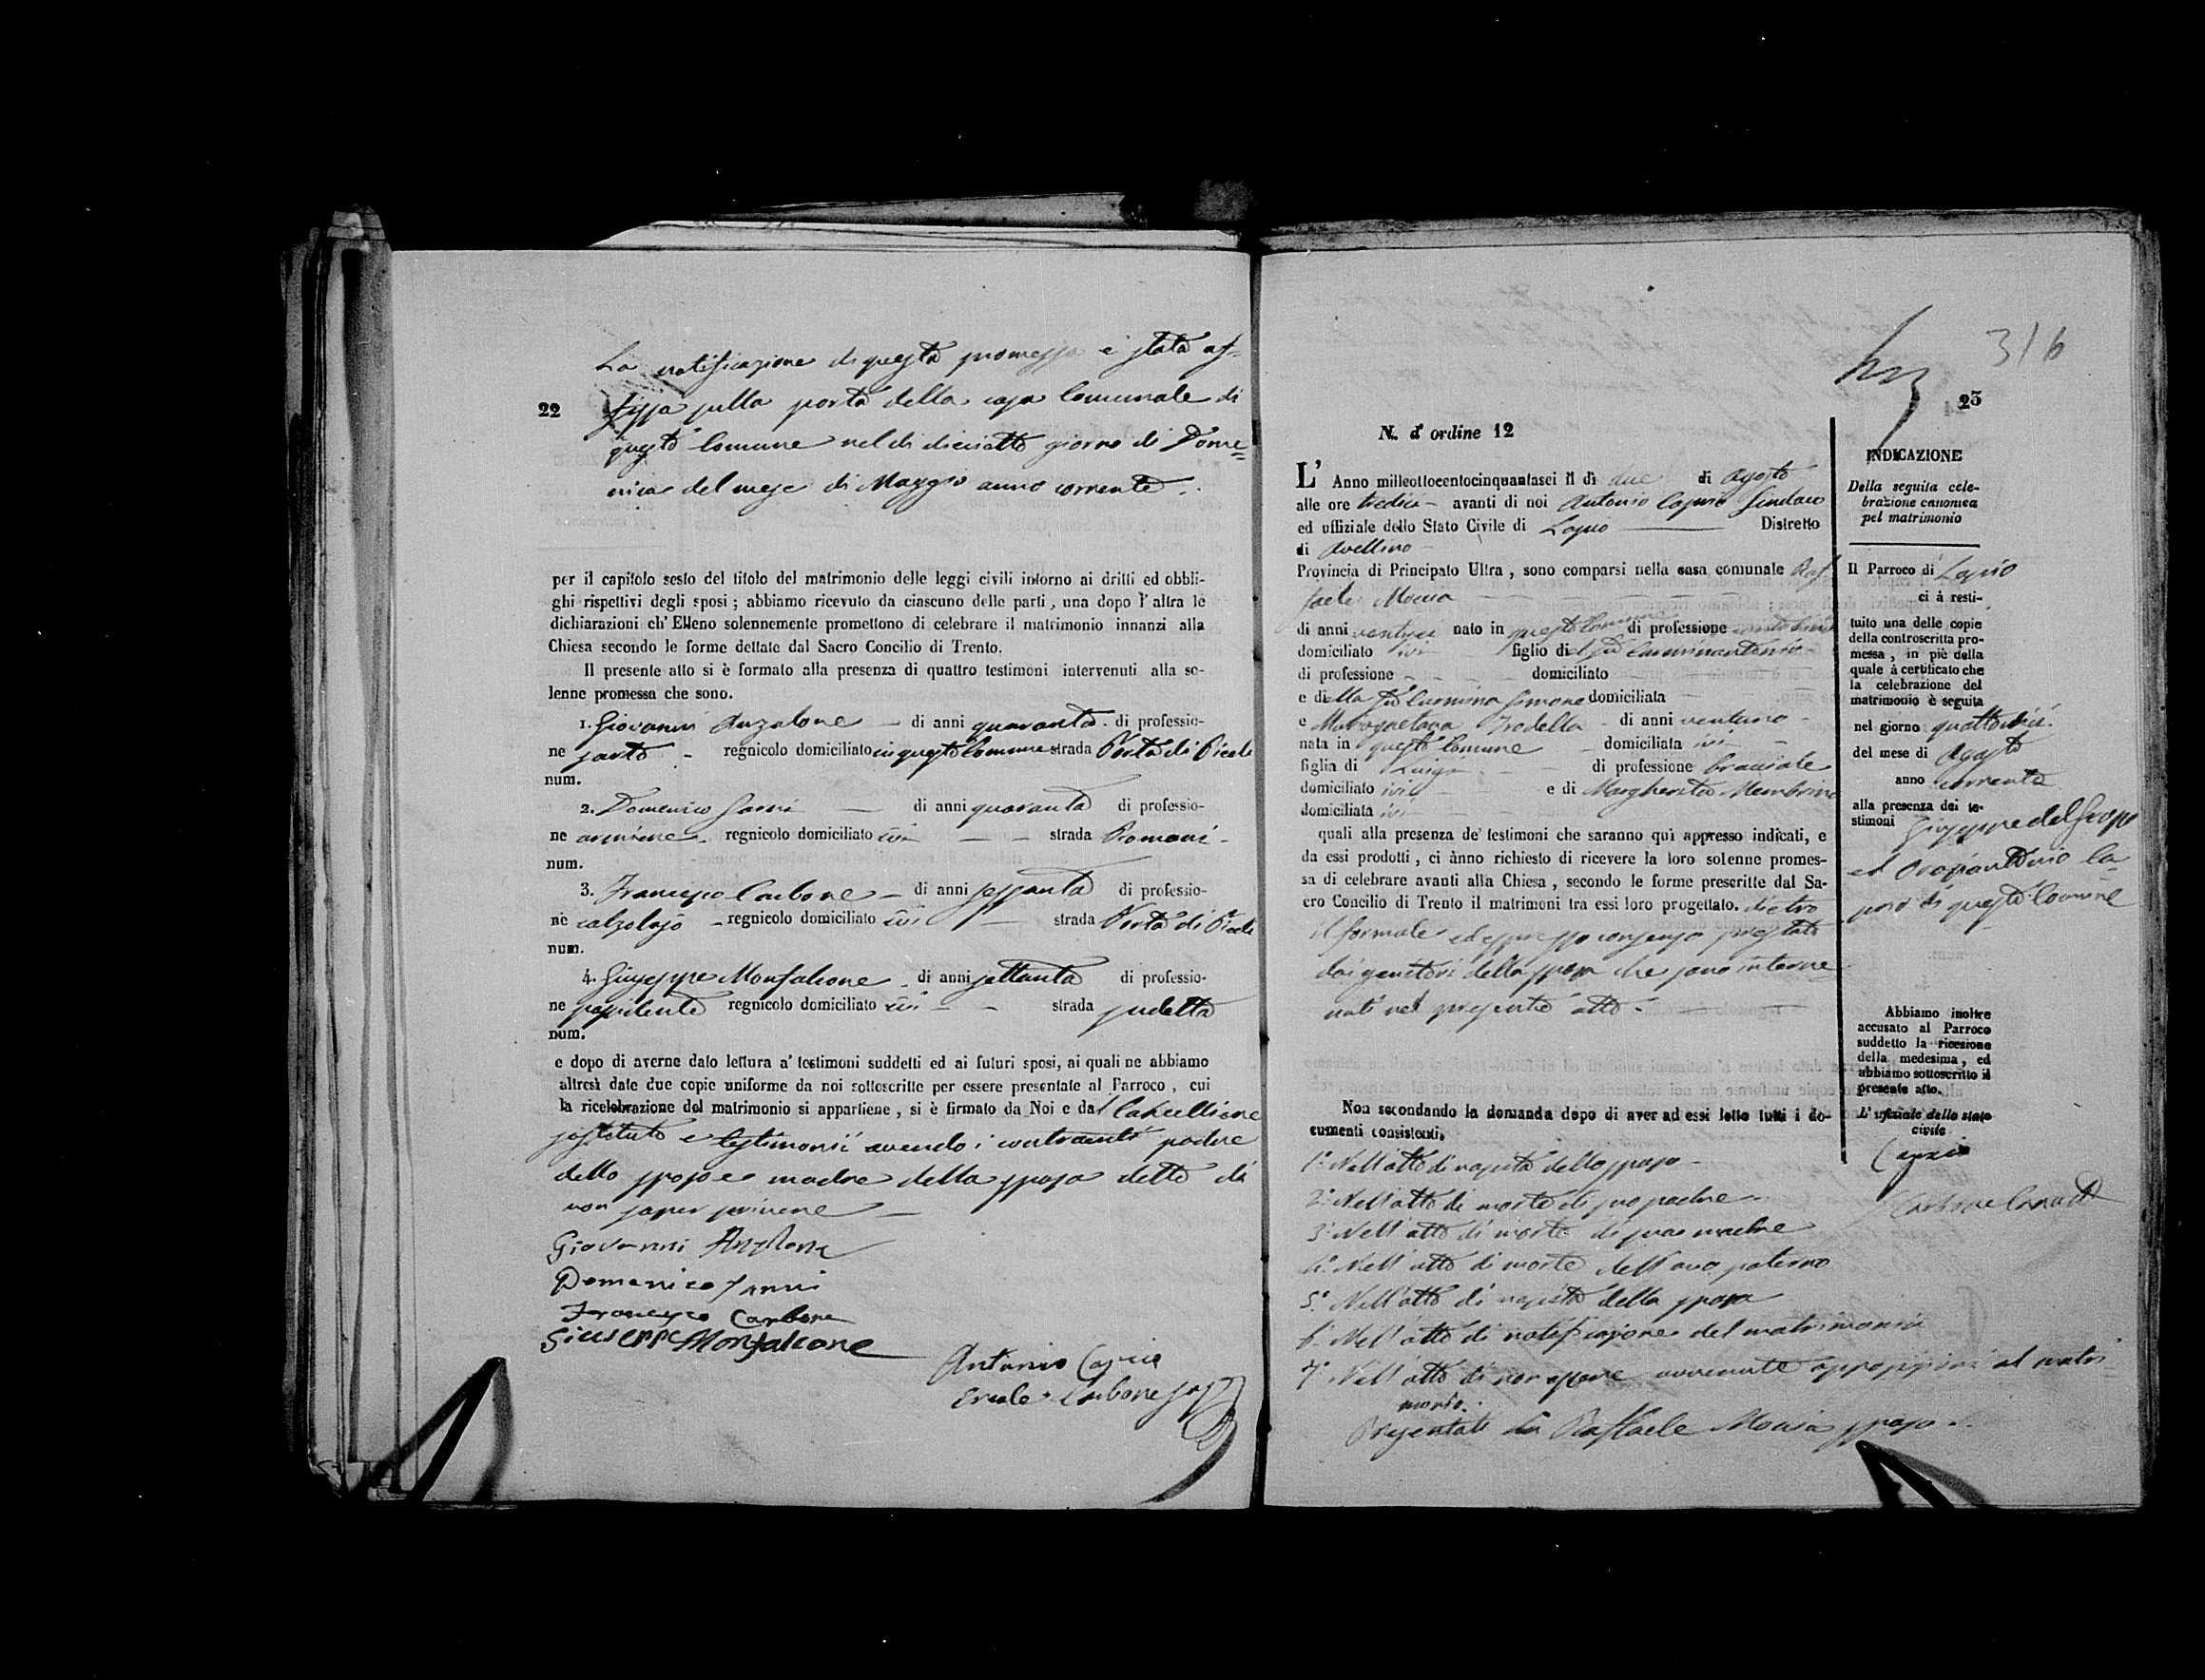 La notificazione di questa promessa è stata af-
fissa sulla porta della casa Comunale di
22
questo Comune nel dì dieciotto giorno di Dome=
nica del mese di Maggio anno corrente.
per il capitolo sesto del titolo del matrimonio delle leggi civili intorno ai dritti ed obbli-
ghi rispettivi degli sposi ; abbiamo ricevuto da ciascuno delle parti , una dopo l'altra le
dichiarazioni ch' Elleno solennemente promettono di celebrare il matrimonio innanzi alla
Chiesa secondo le forme dettate dal Sacro Concilio di Trento.
Il presente atto si è formato alla presenza di quattro testimoni intervenuti alla so-
lenne promessa che sono.
1. Giovanni Anzalone — di anni quaranta di professio-
ne sarto - regnicolo domiciliato in questo Comune strada Porta di
num.
2. Domenico — di anni quaranta di professio-
ne regnicolo domiciliato ivi — — strada Romani -
num.
3. Francesco Carbone — di anni sessanta di professio-
ne calzolajo - regnicolo domiciliato ivi — strada Porta di
num.
4. Giuseppe Monfalcone - di anni settanta di professio-
ne possidente regnicolo domiciliato ivi — - strada
num.
e dopo di averne dato lettura a' testimoni suddetti ed ai futuri sposi, ai quali ne abbiamo
altresì date due copie uniforme da noi sottoscritte per essere presentate al Parroco , cui
la ricelebrazione del matrimonio si appartiene , si è firmato da Noi e dal Cancelliere
sostituto e testimonii avendo i contraenti padre
dello sposo e madre della sposa detto di
non saper scrivere —
Giovanni Anzalone
Domenico
Francesco Carbone
Giuseppe Monfalcone
Antonio Caprio
Ercole Carbone
316
23
N. d' ordine 12
L' Anno milleottocentocinquantasei il dì due di Agosto
alle ore tredici - avanti di noi Antonio Caprio Sindaco
ed uffiziale dello Stato Civile di Lapio — Distretto
di Avellino -
Provincia di Principato Ultra , sono comparsi nella casa comunale Raf
faele Moccia
di anni ventisei nato in questo Comune di professione
domiciliato ivi figlio di fu
di professione - domiciliato
e della fu domiciliata
e - di anni ventuno -
nata in questo Comune - domiciliata ivi -
figlia di Luigi di professione bracciale
domiciliato ivi e di Margherita
domiciliata ivi
quali alla presenza de' testimoni che saranno quì appresso indicati, e
da essi prodotti , ci ànno richiesto di ricevere la loro solenne promes-
sa di celebrare avanti alla Chiesa , secondo le forme prescritte dal Sa-
cro Concilio di Trento il matrimoni tra essi loro progettato. dietro
il formale ed espresso consenso prestato
dai genitori della sposa che sono interve
nuti nel presente atto -
Non secondando la domanda dopo di aver ad essi letto tutti i do-
cumenti consistenti,
1° Nell'atto di nascita dello sposo -
2° Nell'atto di morte di suo padre
3° Nell'atto di morte di sua madre
4° Nell'atto di morte dell'avo paterno
5° Nell'atto di nascita della sposa
6° Nell'atto di notificazione del matrimonio
7° Nell'atto di non essere avvenute opposizioni al matri=
monio.
Presentati da Raffaele Moccia sposo.
INDICAZIONE
Della seguita cele-
brazione canonica
pel matrimonio
Il Parroco di Lapio
ci à resti-
tuito una delle copie
della controscritta pro-
messa , in piè della
quale à certificato che
la celebrazione del
matrimonio è seguita
nel giorno quattordici
del mese di Agosto
anno corrente
alla presenza dei te-
stimoni Giuseppe
ed Ca=
di questo Comune
Abbiamo inoltre
accusato al Parroco
suddetto la ricezione
della medesima , ed
abbiamo sottoscritto il
presente atto.
L' ufiziale dello stato
civile
Caprio
Carbone